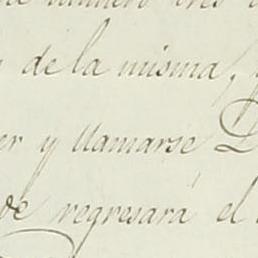 numero tres
de la misma, y
er y llamarse D
de regresará el